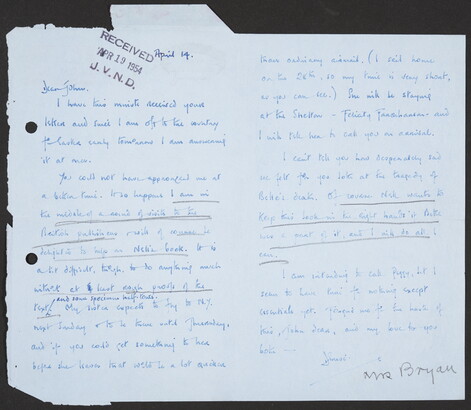 RECEIVED
APR 19 1954
J. V. N. D.
April 14.
Dear John,
I have this minute received yours
letter and since I am off to the country
for early tomorrow I am answering
it at once.
You could not have approached me at
a better time. It so happens I am in
the middle of a round of visits to the
British publishers & will of course be
delighted to help on Nik's book. It is
a bit difficult, though, to do anything much
without at least rough proofs of the
and some specimen
My sister expects to fly to N.Y.
next Sunday & to be there until Thursday,
and if you could get something to her
before she leaves that would be a lot quicker
than ordinary airmail. (I sail home
on the 28th, so my time is very short,
as you can see.) She will be staying
at the Sheraton - Felicity
I will ask her to call you on arrival.
I can't tell you how desperately sad
we felt for you both at the tragedy of
death. Of course Nik wants to
keep this book in the right hands if
was a part of it, and I will do all I
can.
I am intending to call Peggy, but I
seem to have time for nothing except
essentials yet. Forgive me for the haste of
this, John dear, and my love to you
both —
Mrs Bryan